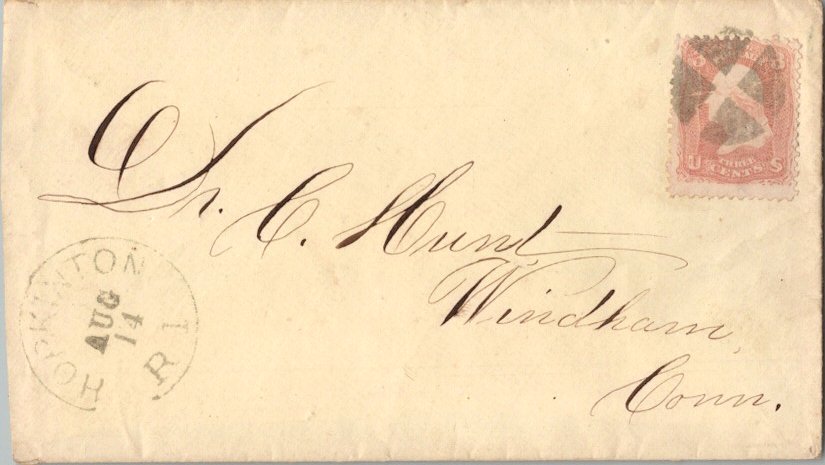 3 3
U THREE S
CENTS
Dr. C. Hunt
Windham,
Conn.
HOPKINTON
AUG
14
R I